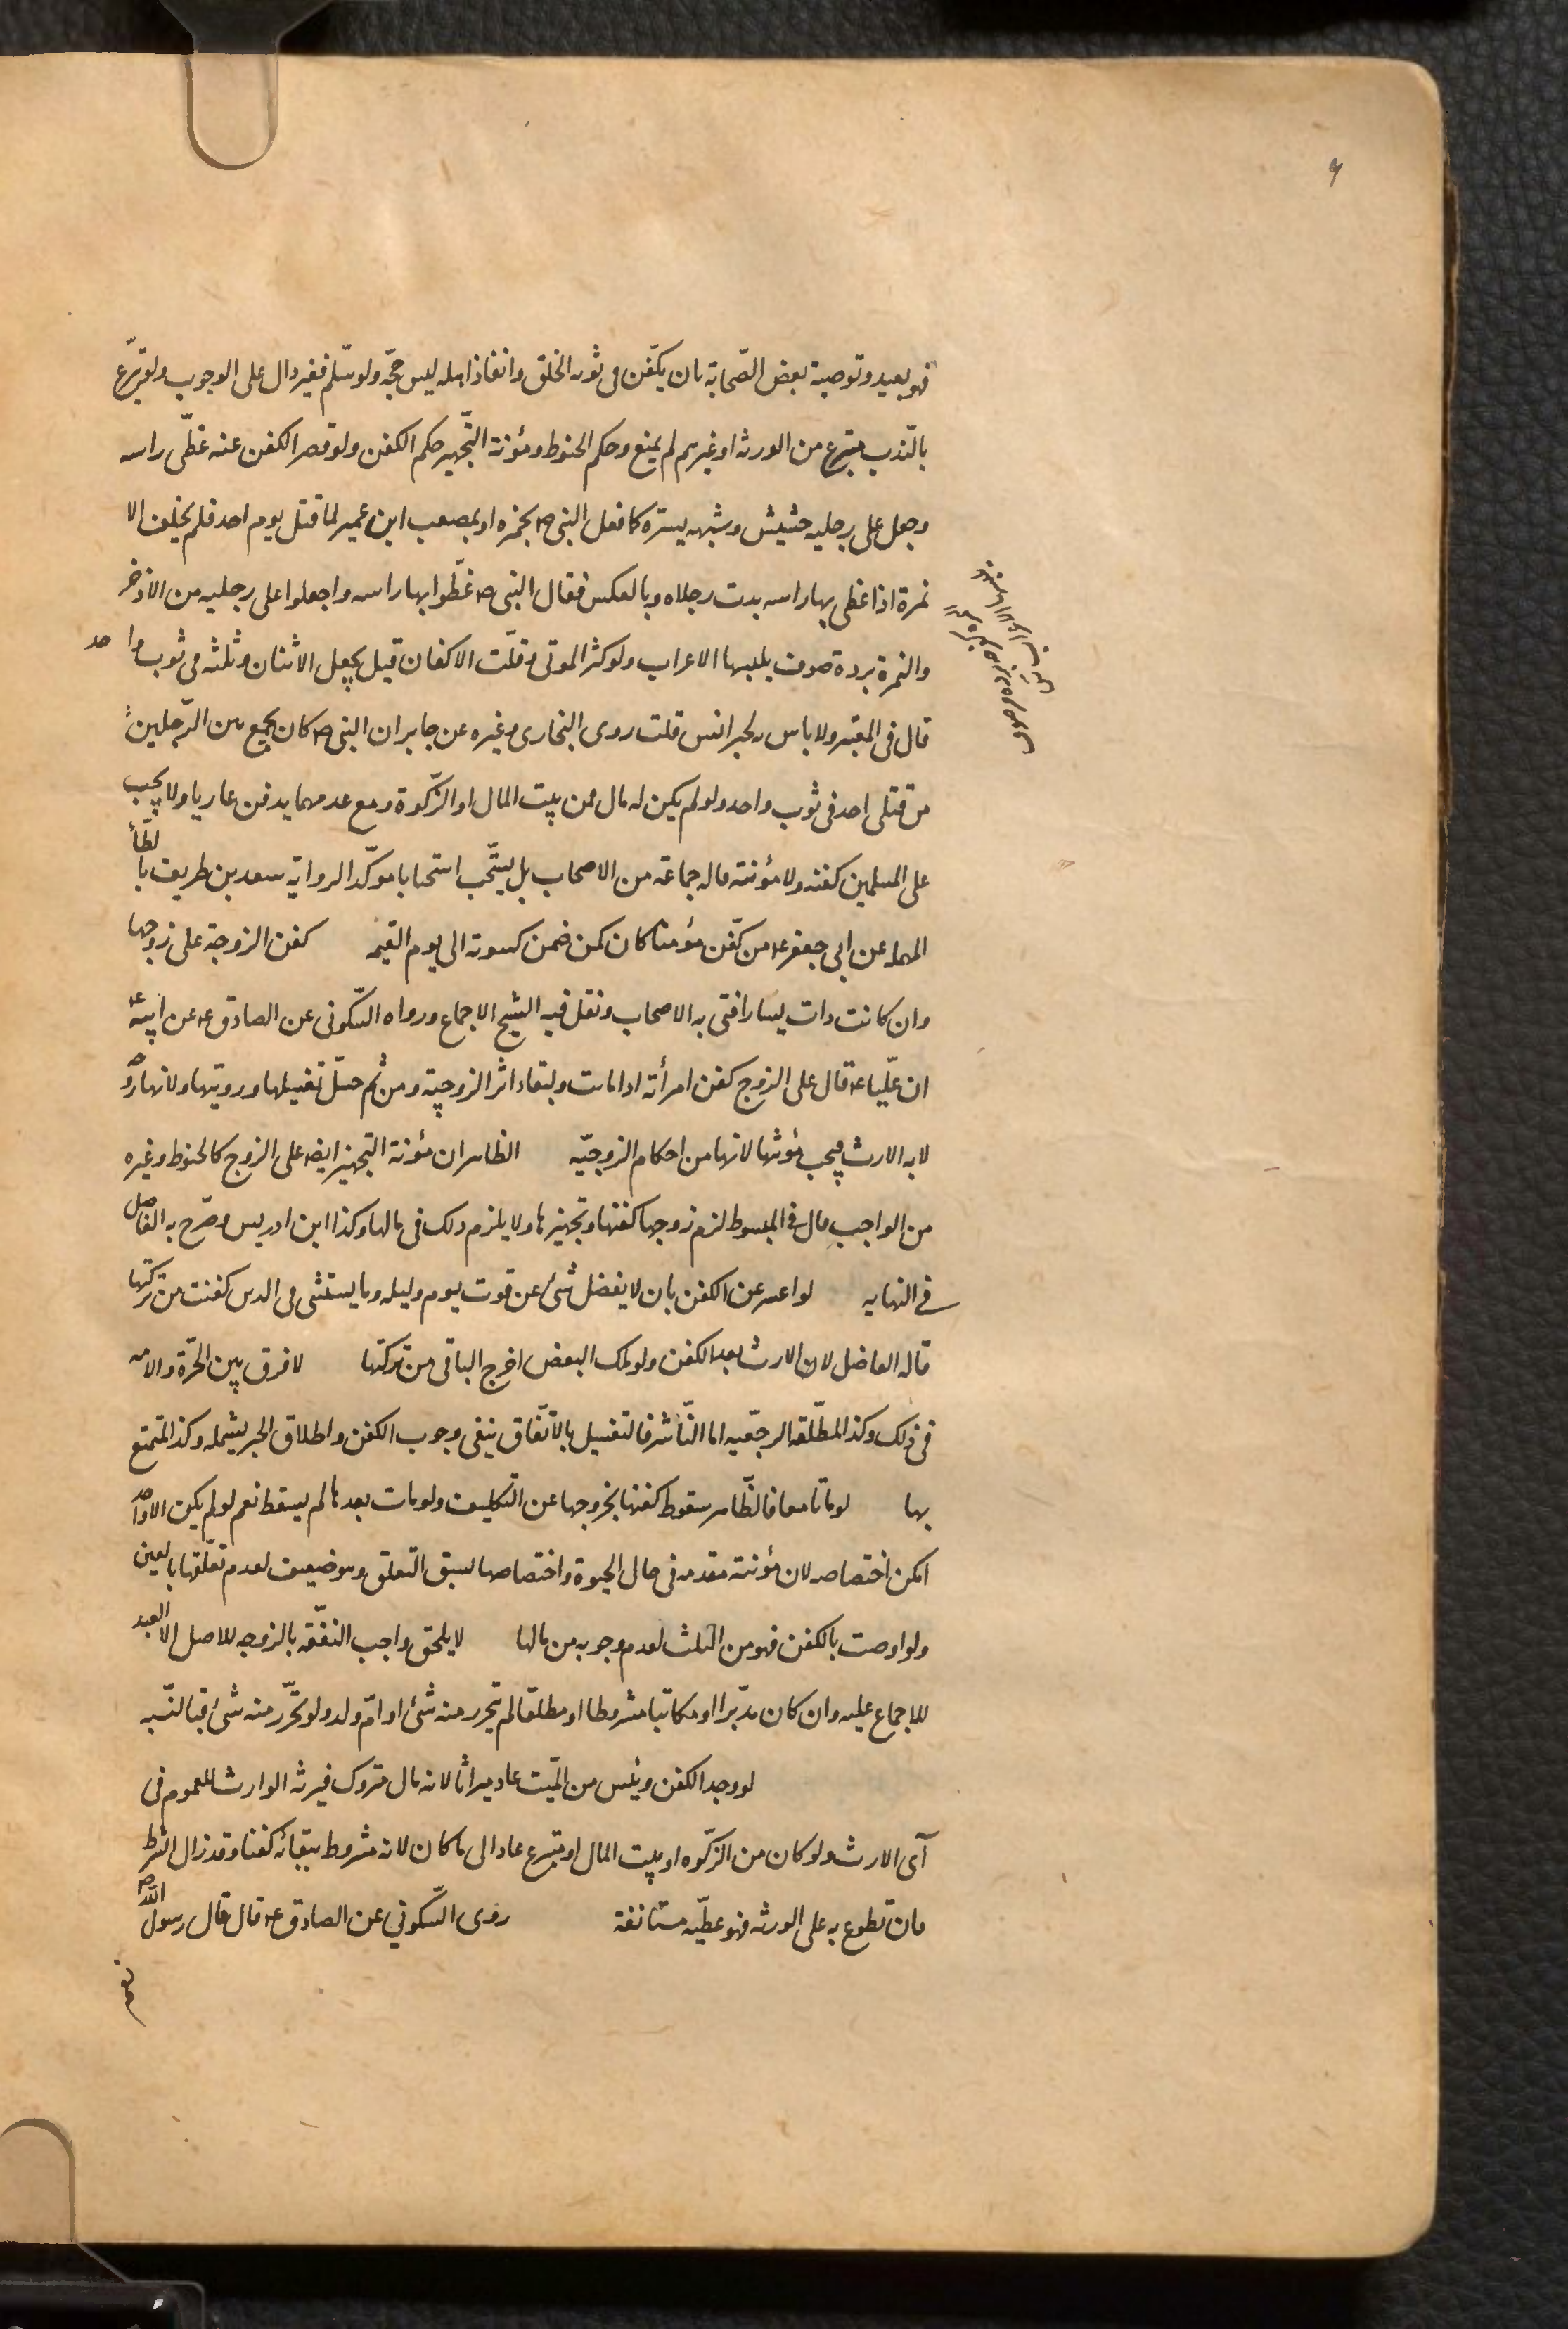 فهو بعيد وتوصية بعض الصّحابة بان يكفّن فى ثوبه الخلق وانفاذ اهله ليس حجّة ولو سلّم فغير دال على الوجوب ولو تبرّع
بالنّدب متبرع من الورثه او غيرهم لم يمنع وحكم الحنوط ومؤنة التّجهيز حكم الكفن ولو قصر الكفن عنه غطّى راسه
وجعل على رجليه حشيش وشبهه يستره كما فعل النبى ص بحمزه او بمصعب ابن عمير لما قتل يوم احد فلم يخلف الا
نمرة اذا غطى بها راسه بدت رجلاه وبالعكس فقال النبى ص غطّوا بها راسه واجعلوا على رجليه من الاذخر
والنمرة بردة صوف يلبسها الاعراب ولو كثر الموتى وقلّت الاكفان قيل يجعل الاثنان وثلثه فى ثوب واحد
قال فى المعتبر ولا باس لخبر انس قلت روى البخارى وغيره عن جابر ان النبى ص كان يجمع بين الرّجلين
من قتلى احد فى ثوب واحد ولو لم يكن له مال فمن بيت المال او الزّكوة ومع عدمهما يدفن عاريا ولا يجب
على المسلمين كفنه ولا مؤنته قاله جماعة من الاصحاب بل يستّحب استحبابا موكّدا لرواية سعد بن طريف بالظّاء
المهملة عن ابى جعفر ع من كفّن مؤمنا كان كمن ضمن كسوته الى يوم القيمه كفن الزوجة على زوجها
وان كانت ذات يسار افتى به الاصحاب ونقل فيه الشيخ الاجماع ورواه السّكونى عن الصادق ع عن ابيه ع
ان عليّا ع قال على الزوج كفن امرأته اذا ماتت ولبقاء اثر الزوجية ومن ثم حلّ تغسيلها ورويتها ولانها زوجة
لاية الارث فيجب مؤنتها لانها من احكام الزوجيّه الظاهر ان مؤنة التجهيز ايضا على الزوج كالحنوط وغيره
من الواجب قال فى المبسوط لزم زوجها كفنها وتجهيزها ولا يلزم ذلك فى مالها وكذا ابن ادريس وصّرح به الفاضل
فى النهايه لو اعسر عن الكفن بان لا يفضل شئ عن قوت يوم وليله وما يستثنى فى الدين كفنت من تركتها
قاله الفاضل لان الارث بعد الكفن ولو ملك البعض اخرج الباقى من تركتها لا فرق بين الحرّة والامه
فى ذلك وكذا المطلّقه الرجعّيه اما النّاشز فالتعليل بالانفاق ينفى وجوب الكفن واطلاق الخبر يشمله وكذا المتمتع
بها لو ماتا معا فالظّاهر سقوط كفنها بخروجها عن التكليف ولو مات بعدها لم يسقط نعم لو لم يكن الا واحد
امكن اختصاصه لان مؤنته مقدمه فى حال الحيوة واختصاصها لسبق التعلق وهو ضعيف لعدم تعلّقها بالعين
ولو اوصت بالكفن فهو من الثلث لعدم وجوبه من مالها لا يلحق واجب النفّقه بالزوجه للاصل الا العبد
للاجماع عليه وان كان مدّبرا او مكاتبا مشروطا او مطلقا لم يتحرر منه شئ او امّ ولد ولو تحرّر منه شئ فبالنّسبه
لو وجد الكفن ويئس من الميّت عاد ميراثا لانه مال متروك فيرثه الوارث للعموم فى
آى الارث ولو كان من الزّكوه او بيت المال او متبرع عاد الى ما كان لانه مشروط ببقائه كفنا وقد زال الشرط
فان تطوع به على الورثه فهو عطيّه مستانفة روى السّكوني عن الصادق ع قال قال رسول الله ص
نعم